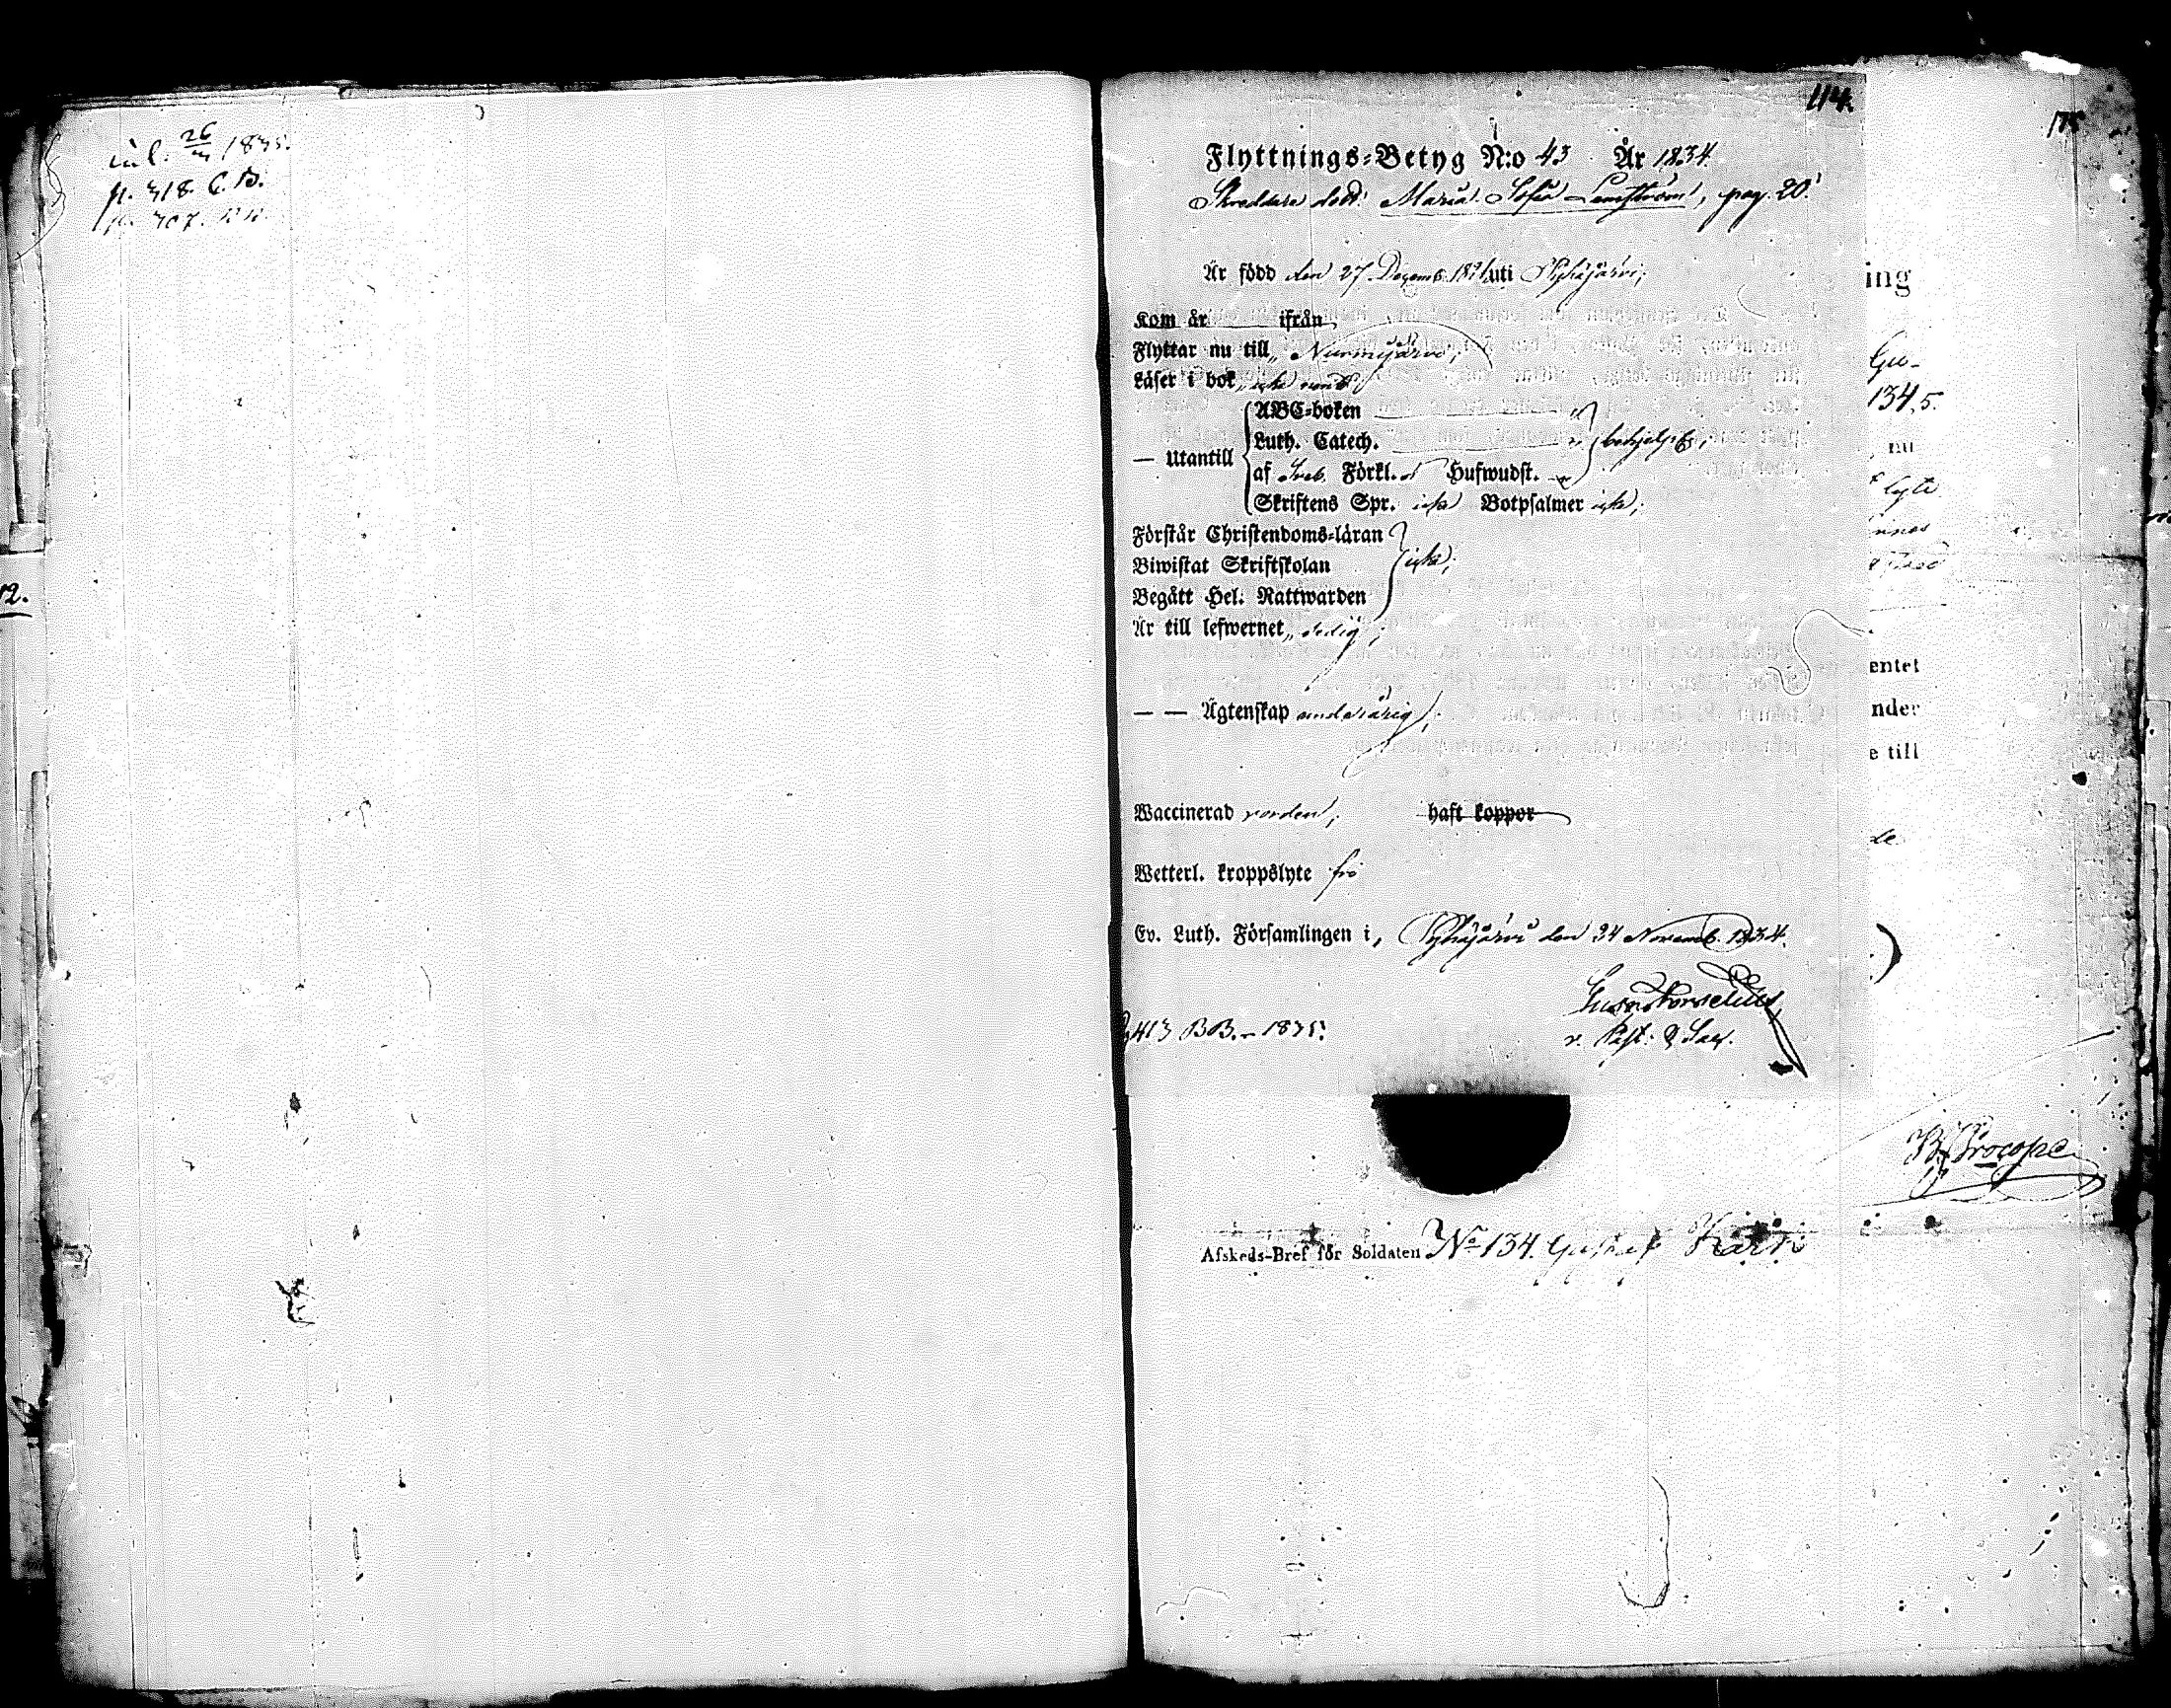 inl. 26/3 1835.
p. 318. C. B.
p. 307.
12.
114.
175
Flyttnings-Betyg N:o 43 År 1834.
Skreddare dott: Maria Sofia Lemström, pag. 20.
Är född den 27 Decemb. 1821 uti Pyhäjärvi;
Kom år ifrån
Flyttar nu till, Nurmijärvi;
Läser i bok, icke rent;
— Utantill
ABC-boken
Luth. Catech.
af Sveb. Förkl. Hufwudst.
behjelpl.;
Skriftens Spr. icke Botpsalmer icke;
Förstår Christendoms-läran
Biwistat Skriftskolan
Begått Hel. Nattwarden
icke;
Är till lefwernet, sedig;
— — Ägtenskap underårig;
Waccinerad vorden; haft koppor
Wetterl. kroppslyte fri
Ev. Luth. Församlingen i, Pyhäjärvi den 24 Novemb. 1834.
v. Past. & Sac.
413 BB. – 1835.
ing
Gu-
134,5.
nu
lyte
entet
nder
e till
de
Procope
Afskeds-Bref för Soldaten No 134. Gustaf Karki